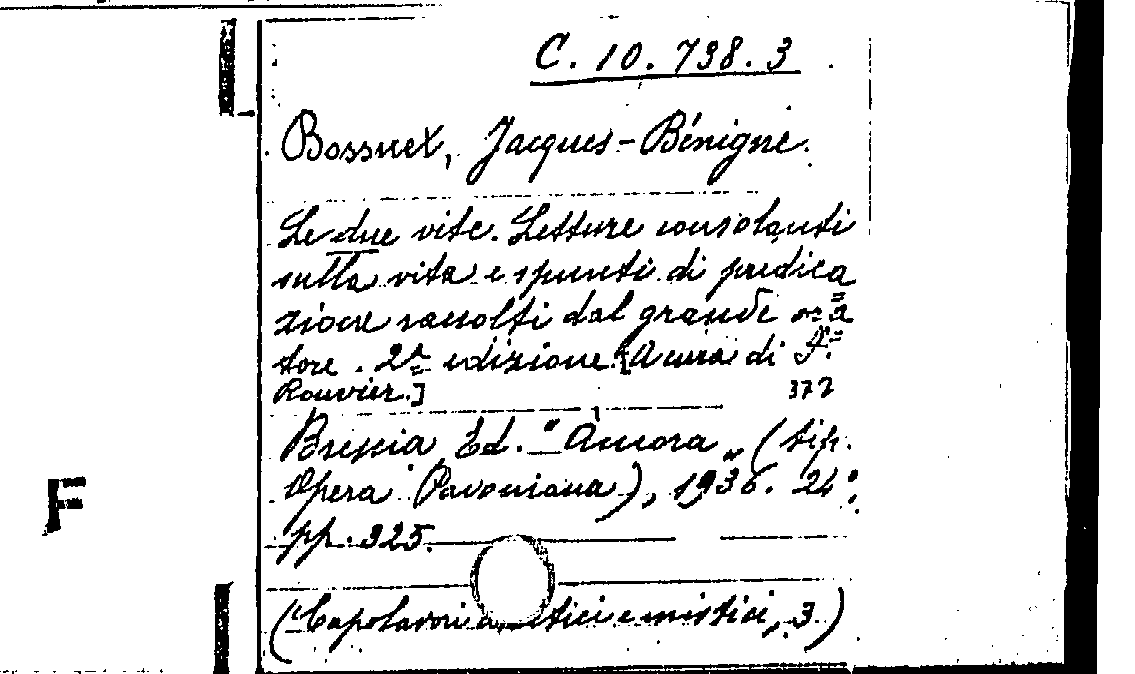 C. 10. 738. 3
Bossuet, Jacques-Bénigne.
Le due vite. Letture consolanti
sulla vita e spunti di predica
zione raccolti dal grande ora=
tore. 2ª edizione. [A cura di F.
Rouvier.]
372
Brescia, Ed. "Àncora„ (tip.
Opera Pavoniana), 1936. 24°,
pp. 325.
F
("Capolavori a etici e mistici, 3.)